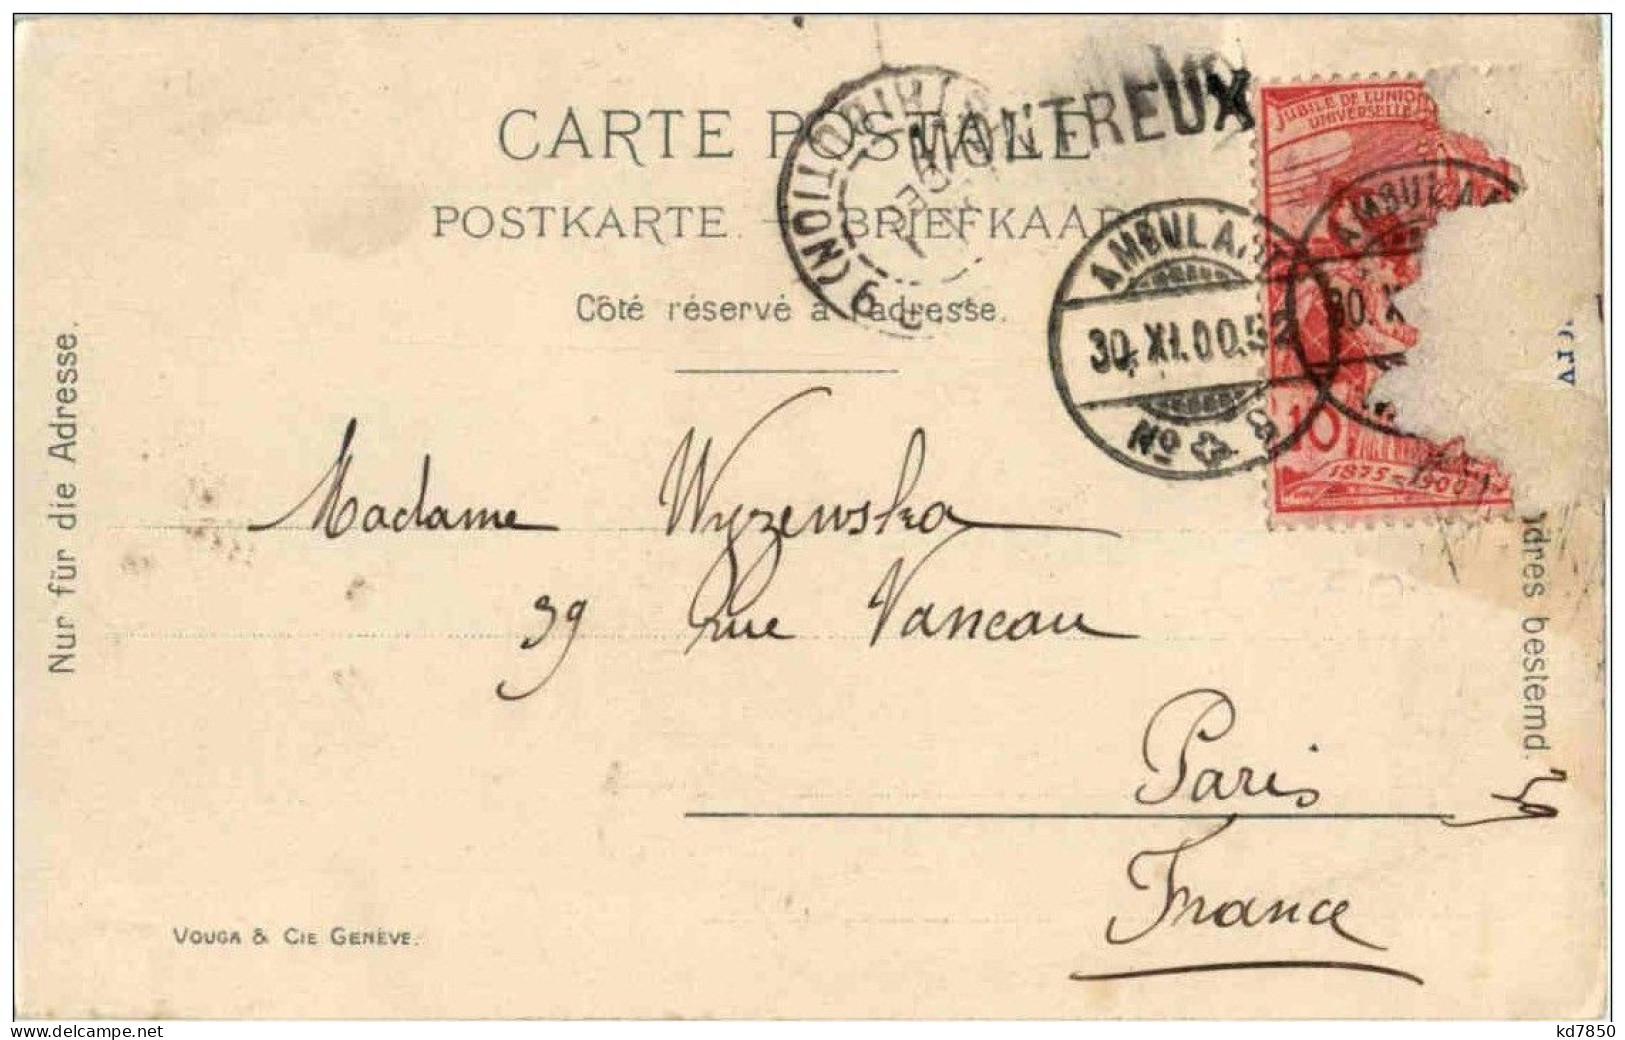 CARTE POSTALE
MONTREUX
POSTKARTE. – BRIEFKAAR
Côté réservé à l'adresse.
DISTRIBUTION) 6 E
JUBILÉ DE L'UNION
UNIVERSELLE
10
1875=1900
AMBULANT
30.XI.00.5 2
No
AMBULA
30.X
Nur für die Adresse.
dres bestemd.
Madame Wyzewska
39 Rue Vaneau
Paris
France
VOUGA & CIE GENÈVE.
www.delcampe.net
kd7850